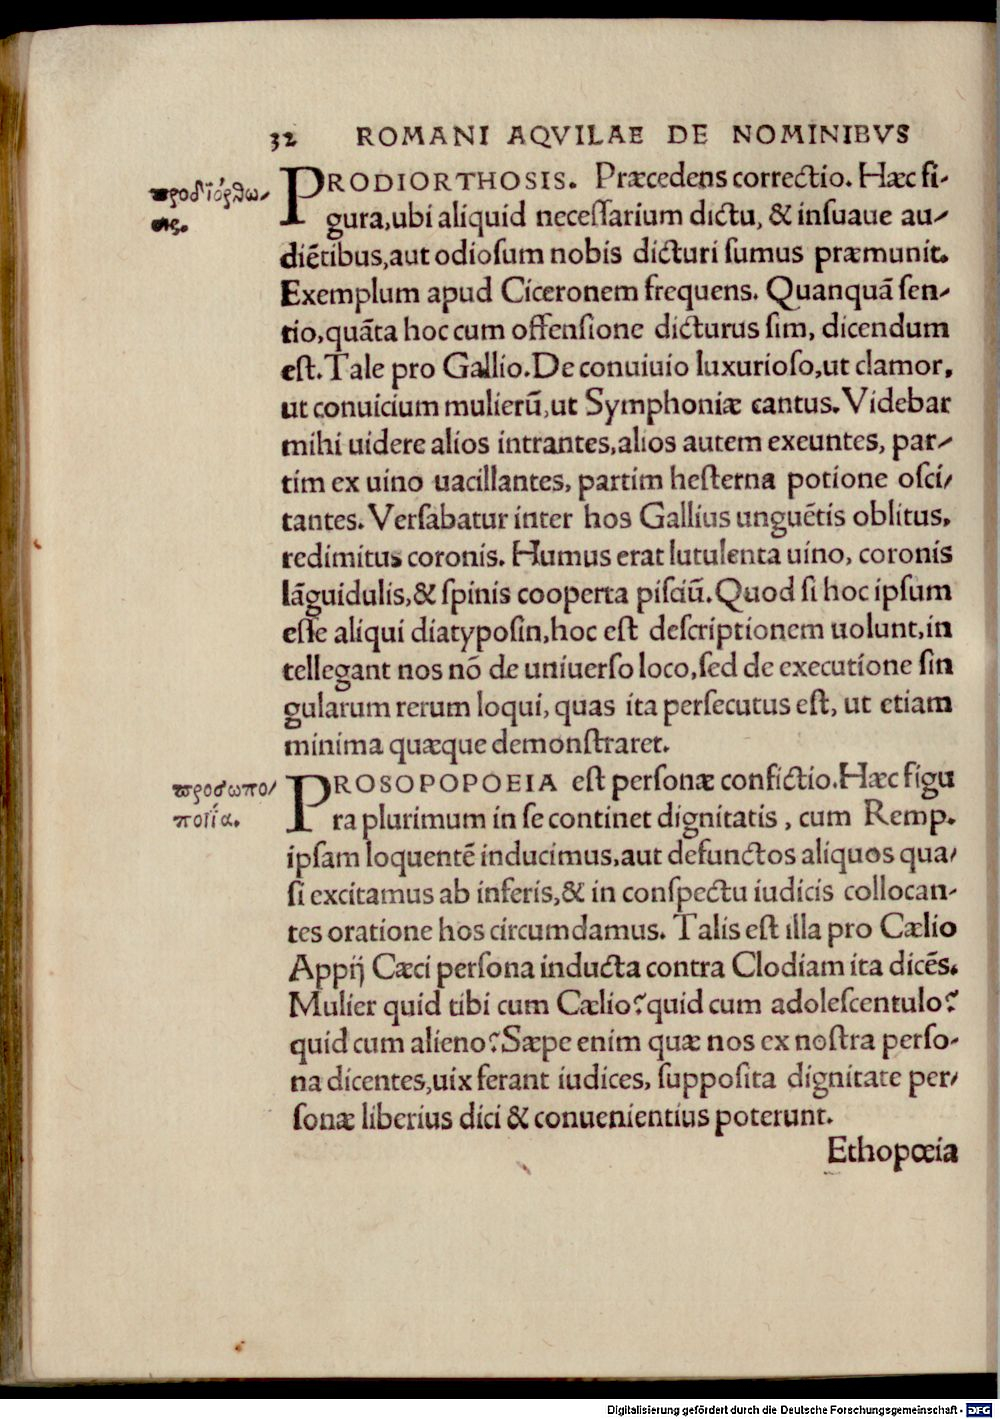 32 ROMANI AQVILAE DE NOMINIBVS
προδιόρθω-
σις.
PRODIORTHOSIS. Præcedens correctio. Hæc fi-
gura,ubi aliquid neceſſarium dictu, & inſuaue au-
diẽtibus,aut odioſum nobis dicturi ſumus præmunit.
Exemplum apud Ciceronem frequens. Quanquã ſen-
tio,quãta hoc cum offenſione dicturus ſim, dicendum
eſt. Tale pro Gallio.De conuiuio luxurioſo,ut clamor,
ut conuicium mulierũ,ut Symphoniæ cantus. Videbar
mihi uidere alios intrantes,alios autem exeuntes, par-
tim ex uino uacillantes, partim heſterna potione oſci-
tantes. Verſabatur inter hos Gallius unguẽtis oblitus,
redimitus coronis. Humus erat lutulenta uino, coronis
lãguidulis,& ſpinis cooperta piſciũ. Quod ſi hoc ipſum
eſſe aliqui diatypoſin,hoc eſt deſcriptionem uolunt,in
tellegant nos nõ de uniuerſo loco,ſed de executione ſin
gularum rerum loqui, quas ita perſecutus eſt, ut etiam
minima quæque demonſtraret.
προσωπο-
ποιΐα.
PROSOPOPOEIA eſt perſonæ confictio.Hæc figu
ra plurimum in ſe continet dignitatis , cum Remp.
ipſam loquentẽ inducimus,aut defunctos aliquos qua-
ſi excitamus ab inferis,& in conſpectu iudicis collocan-
tes oratione hos circumdamus. Talis eſt illa pro Cælio
Appij Cæci perſona inducta contra Clodiam ita dicẽs.
Mulier quid tibi cum Cælio? quid cum adoleſcentulo?
quid cum alieno? Sæpe enim quæ nos ex noſtra perſo-
na dicentes,uix ferant iudices, ſuppoſita dignitate per-
ſonæ liberius dici & conuenientius poterunt.
Ethopœia
Digitalisierung gefördert durch die Deutsche Forschungsgemeinschaft - DFG